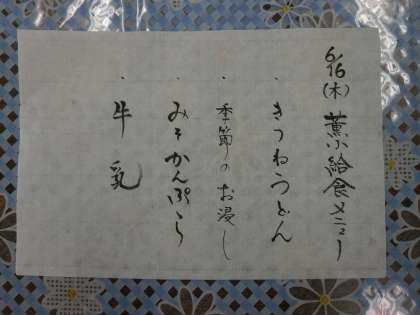 6/16(木) 薫小給食メニュー
・きつねうどん
・季節のお浸し
・みそかんぷら
・牛乳